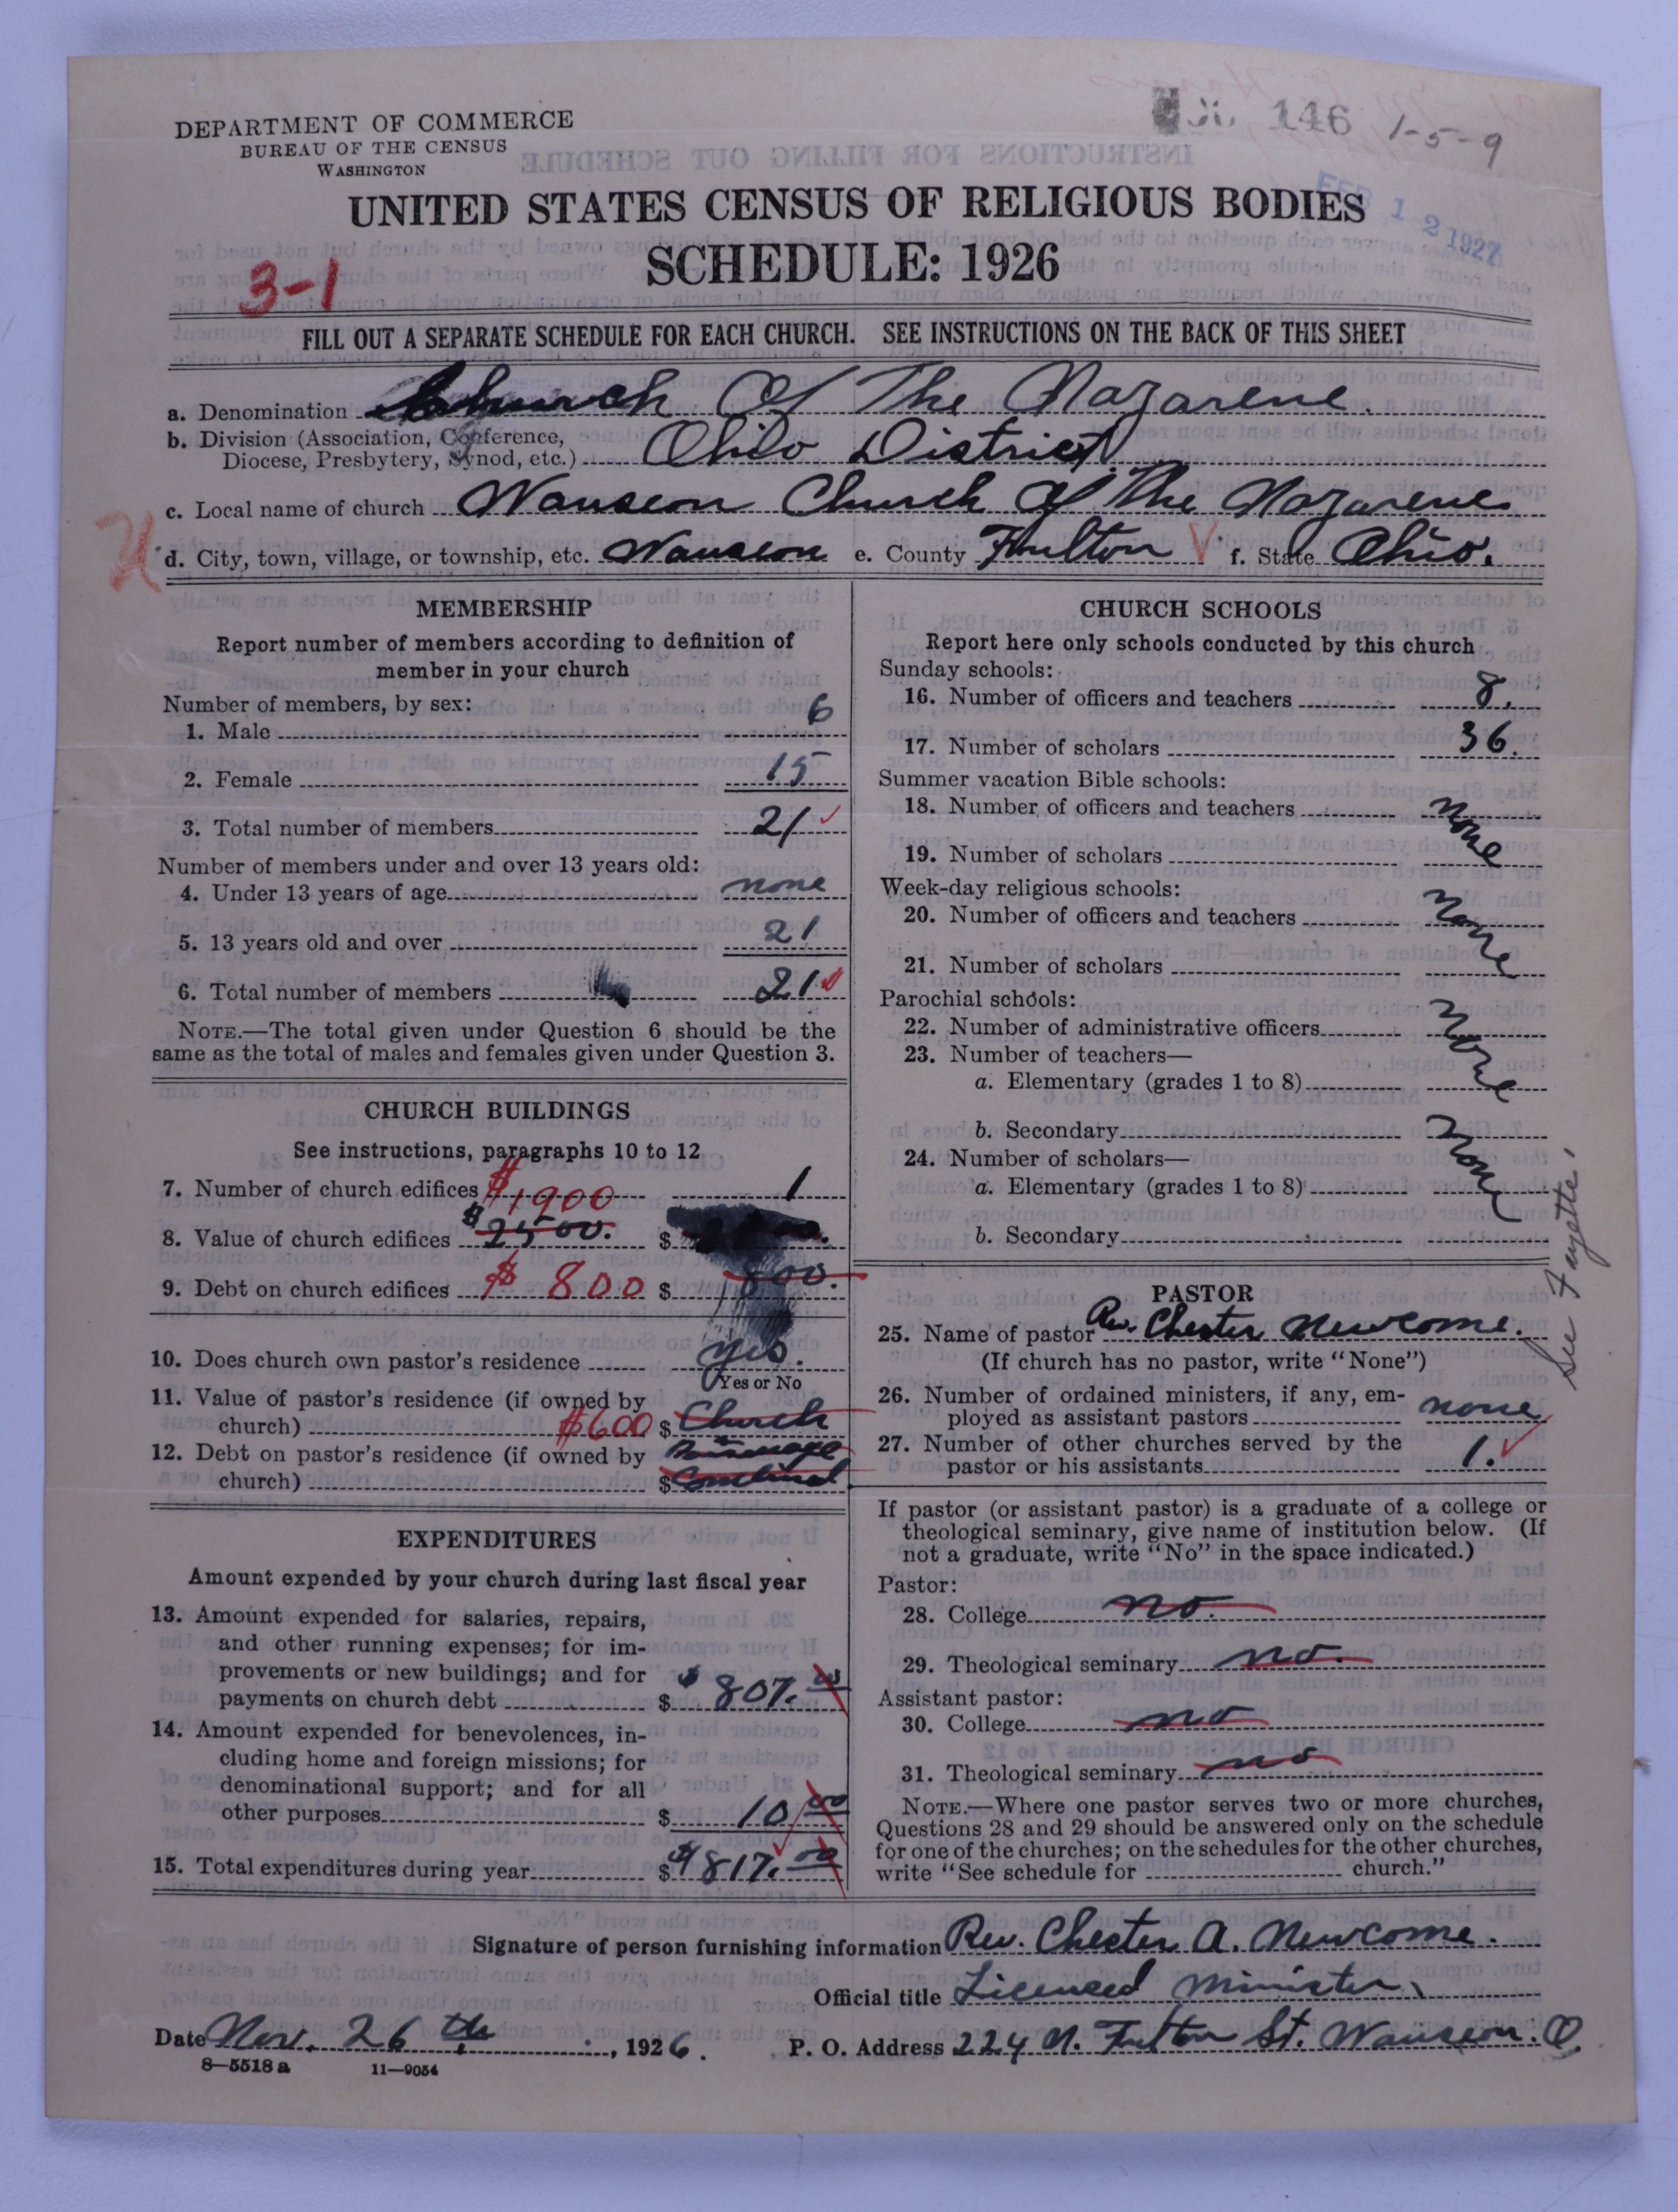 146 1-5-9
DEPARTMENT OF COMMERCE
BUREAU OF THE CENSUS
WASHINGTON
FEB 12 1927
UNITED STATES CENSUS OF RELIGIOUS BODIES
SCHEDULE: 1926
3-1
FILL OUT A SEPARATE SCHEDULE FOR EACH CHURCH. SEE INSTRUCTIONS ON THE BACK OF THIS SHEET
a. Denomination Church Of The Nazarene.
b. Division (Association, Conference,
Diocese, Presbytery, Synod, etc.) Ohio District.
c. Local name of church Wauseon Church Of The Nazarene
d. City, town, village, or township, etc. Wauseon e. County Fulton V f. State Ohio.
MEMBERSHIP
Report number of members according to definition of
member in your church
Number of members, by sex:
1. Male 6
2. Female 15
3. Total number of members 21
Number of members under and over 13 years old:
4. Under 13 years of age none
5. 13 years old and over 21
6. Total number of members 21
NOTE.—The total given under Question 6 should be the
same as the total of males and females given under Question 3.
CHURCH BUILDINGS
See instructions, paragraphs 10 to 12
7. Number of church edifices 1
$1900
8. Value of church edifices $2500. $
9. Debt on church edifices $800 $ 800.
10. Does church own pastor's residence yes.
Yes or No
11. Value of pastor's residence (if owned by
church) $600 $ Church
12. Debt on pastor's residence (if owned by
church) $ Combined
EXPENDITURES
Amount expended by your church during last fiscal year
13. Amount expended for salaries, repairs,
and other running expenses; for im-
provements or new buildings; and for
payments on church debt $ $807.00
14. Amount expended for benevolences, in-
cluding home and foreign missions; for
denominational support; and for all
other purposes $ 10.00
15. Total expenditures during year $ $817.00
CHURCH SCHOOLS
Report here only schools conducted by this church
Sunday schools:
16. Number of officers and teachers 8.
17. Number of scholars 36.
Summer vacation Bible schools:
18. Number of officers and teachers none
19. Number of scholars
Week-day religious schools:
20. Number of officers and teachers none
21. Number of scholars
Parochial schools:
22. Number of administrative officers none
23. Number of teachers—
a. Elementary (grades 1 to 8)
b. Secondary none
24. Number of scholars—
a. Elementary (grades 1 to 8)
b. Secondary
See Fayette.
PASTOR
25. Name of pastor Rev. Chester Newcome.
(If church has no pastor, write "None")
26. Number of ordained ministers, if any, em-
ployed as assistant pastors none
27. Number of other churches served by the
pastor or his assistants 1.
If pastor (or assistant pastor) is a graduate of a college or
theological seminary, give name of institution below. (If
not a graduate, write "No" in the space indicated.)
Pastor:
28. College no.
29. Theological seminary no.
Assistant pastor:
30. College no
31. Theological seminary no
NOTE.—Where one pastor serves two or more churches,
Questions 28 and 29 should be answered only on the schedule
for one of the churches; on the schedules for the other churches,
write "See schedule for church."
Signature of person furnishing information Rev. Chester A. Newcome.
Official title Licensed Minister
Date Nov. 26th, 1926. P. O. Address 224 N. Fulton St. Wauseon. O.
8—5518a 11—9054